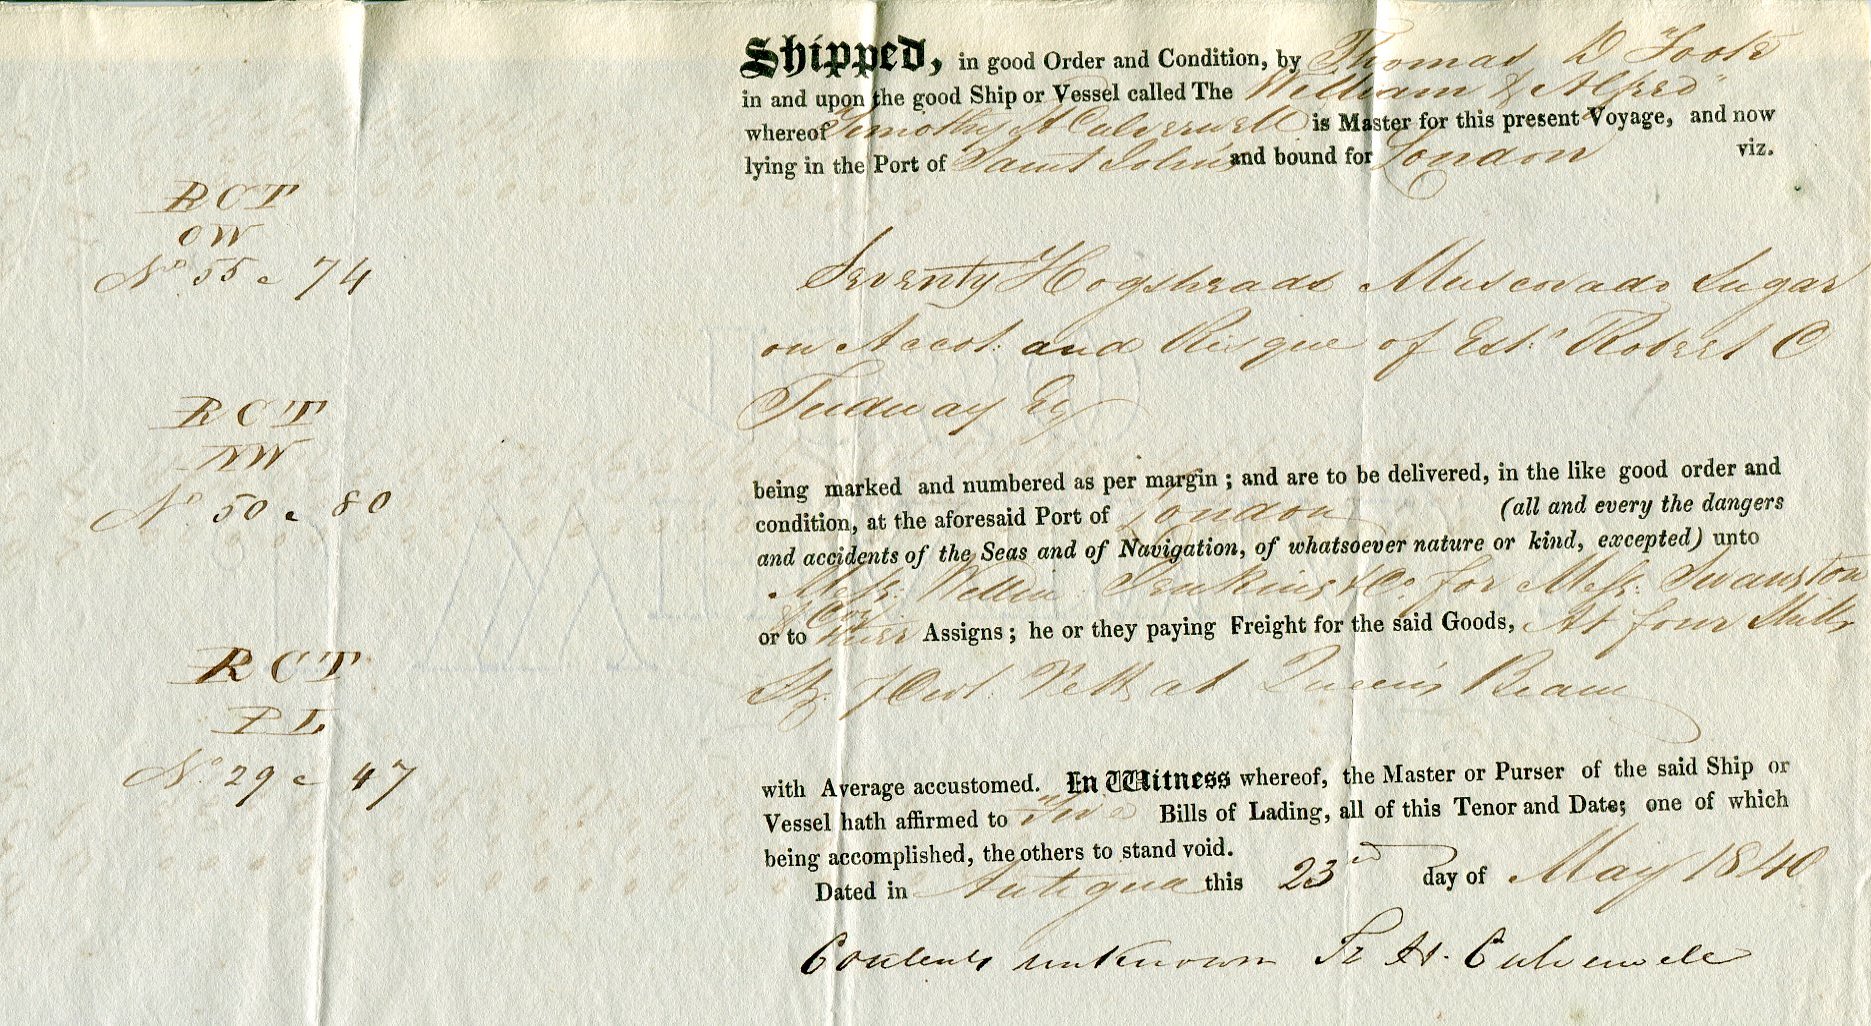 Shipped, in good Order and Condition, by Thomas D Foote
in and upon the good Ship or Vessel called The "William & Alfred"
whereof Timothy H Culverwell is Master for this present Voyage, and now
lying in the Port of Saint John's and bound for London viz.
RCT
OW
No. 55 a 74
Seventy Hogsheads Muscovado Sugar
on Accot: and Risque of Robert C
Tudway Esq
RCT
NW
No. 50 a 80
being marked and numbered as per margin; and are to be delivered, in the like good order and
condition, at the aforesaid Port of London (all and every the dangers
and accidents of the Seas and of Navigation, of whatsoever nature or kind, excepted) unto
Messrs: Jenkins & Co. for Messrs: Swanston
& Coy
or to their Assigns; he or they paying Freight for the said Goods, At four
RCT
PL
No. 29 a 47
Cwt. Nett at Queen's Beam
with Average accustomed. In Witness whereof, the Master or Purser of the said Ship or
Vessel hath affirmed to Bills of Lading, all of this Tenor and Date; one of which
being accomplished, the others to stand void.
Dated in Antigua this 23rd day of May 1840
Contents unknown H. Culverwell